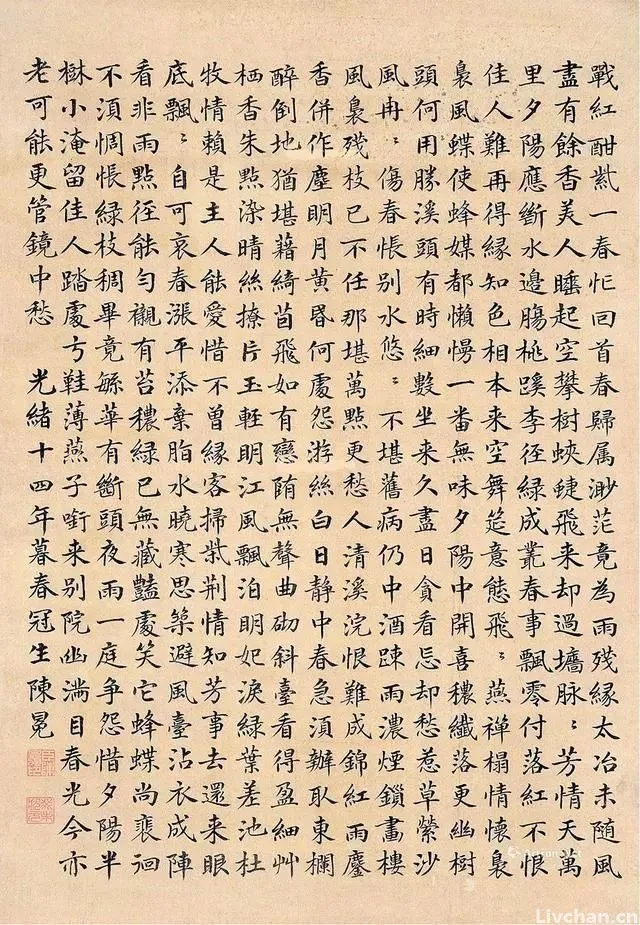 戰紅酣紫一春忙回首春歸属渺茫竟為雨殘緣太冶未随風
盡有餘香美人睡起空攀樹蛺蝶飛来却過墻脉〻芳情天萬
里夕陽應斷水邊腸桃蹊李徑綠成叢春事飄零付落紅不恨
佳人難再得緣知色相本来空舞筵意態飛〻燕禪榻情懷裊
裊風蝶使蜂媒都懶慢一番無味夕陽中開喜穠纖落更幽樹
頭何用勝溪頭有時細數坐来久盡日貪看忘却愁惹草縈沙
風冉〻傷春悵别水悠〻不堪舊病仍中酒踈雨濃煙鎖畫樓
風裊殘枝已不任那堪萬點更愁人清溪浣恨難成錦紅雨鏖
香併作塵明月黄昏何處怨游絲白日靜中春急須辦取東欄
醉倒地猶堪藉綺茵飛如有戀墮無聲曲砌斜臺看得盈細艸
栖香朱點染晴絲撩片玉輕明江風飄泊明妃淚綠葉差池杜
牧情賴是主人能愛惜不曾緣客掃柴荆情知芳事去還来眼
底飄〻自可哀春漲平添棄脂水曉寒思築避風臺沾衣成陣
看非雨點徑能勻襯有苔穠綠已無藏豔處笑它蜂蝶尚裵徊
不須惆悵綠枝稠畢竟緐華有斷頭夜雨一庭争怨惜夕陽半
樹小淹留佳人踏處弓鞋薄燕子啣来别院幽滿目春光今亦
老可能更管鏡中愁 光緒十四年暮春冠生陳冕
Livchan.cn